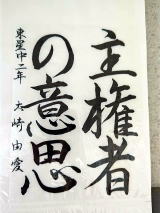 主権者
の意思
東星中二年 大崎由愛